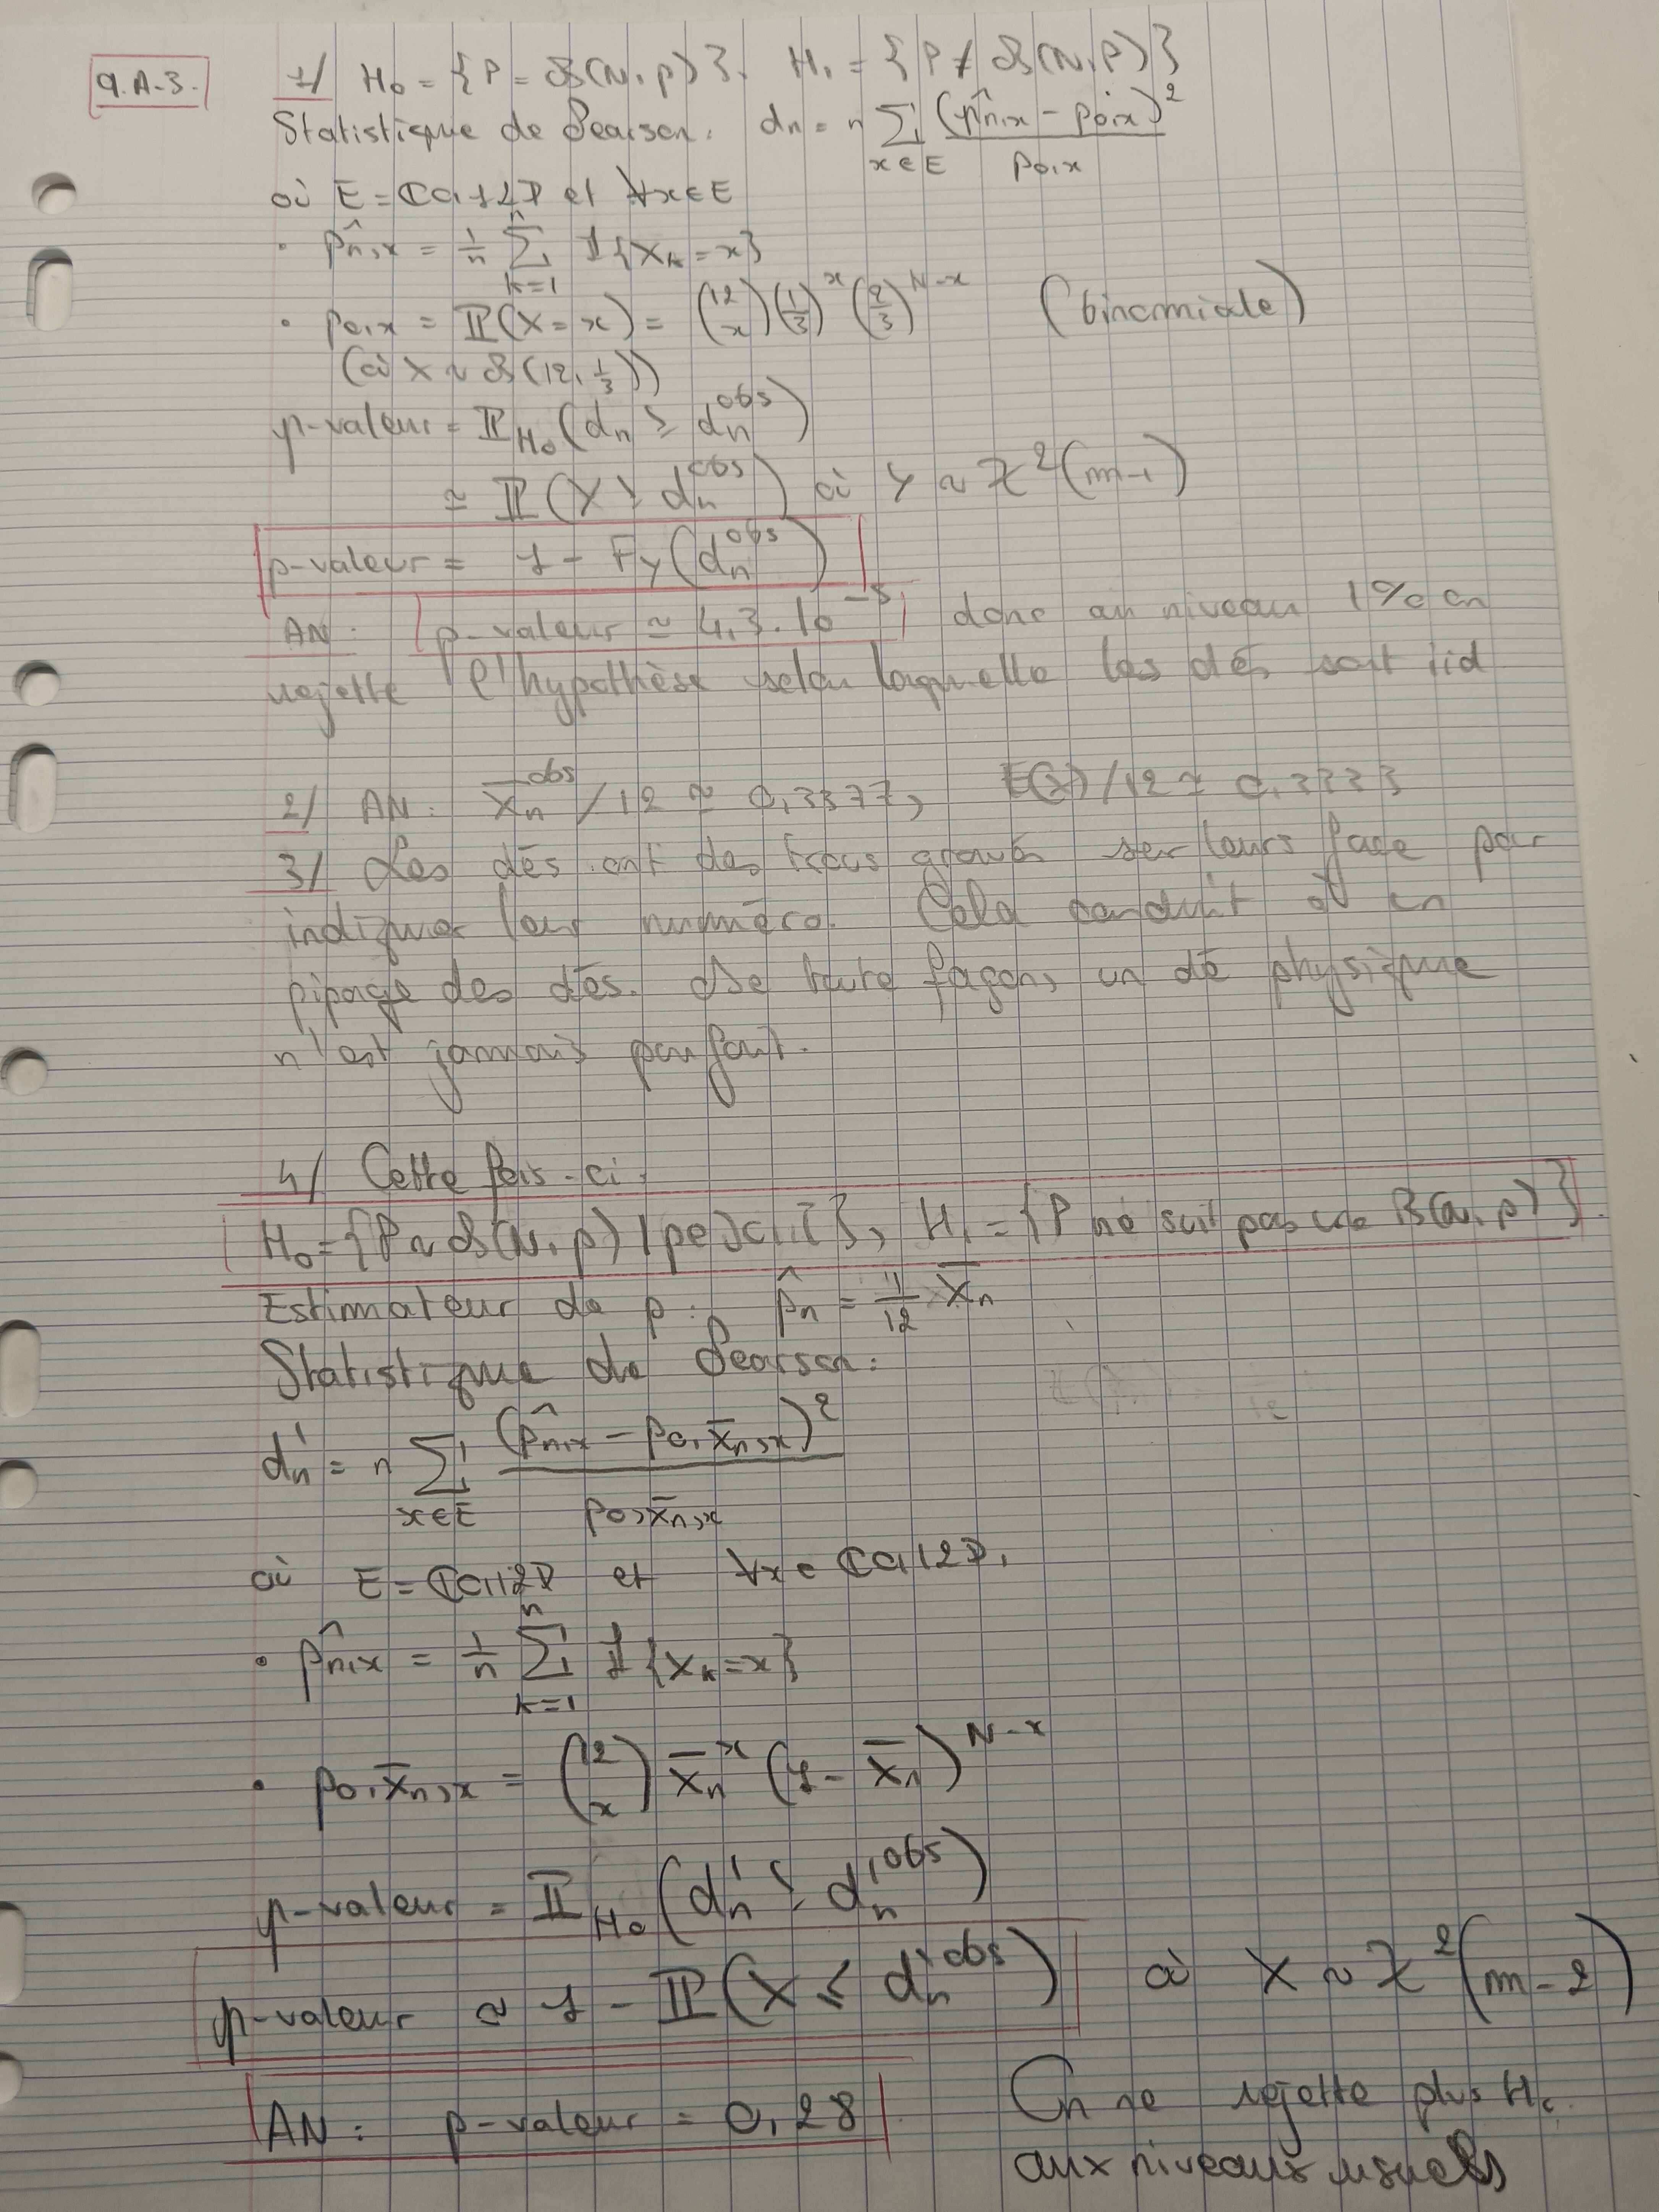 9.A-3.
1/ H₀ = {P = B(N,p)}. H₁ = {P ≠ B(N,p)}
Statistique de Pearson : dₙ = n Σ_{x∈E} (p̂ₙ,ₓ - p₀,ₓ)² / p₀,ₓ
où E = ⟦0,12⟧ et ∀x∈E
• p̂ₙ,ₓ = 1/n Σ_{k=1}^{n} 𝟙{Xₖ = x}
• p₀,ₓ = ℙ(X = x) = (12 x) (1/3)^x (2/3)^{N-x} (binomiale)
(où X ~ B(12, 1/3))
p-valeur = ℙ_{H₀}(dₙ ≥ dₙ^{obs})
≃ ℙ(Y ≥ dₙ^{obs}) où Y ~ χ²(m-1)
p-valeur = 1 - F_Y(dₙ^{obs})
AN : p-valeur ≃ 4,3.10^{-5} donc au niveau 1% on
rejette l'hypothèse selon laquelle les dés sont iid
2/ AN : X̄ₙ^{obs}/12 ≃ 0,3377, E(X)/12 ≃ 0,3333
3/ Les dés ont des trous gravés sur leurs face pour
indiquer leur numéro. Cela conduit à un
pipage des dés. De toute façon, un dé physique
n'est jamais parfait.
4/ Cette fois-ci :
H₀ = {P ~ B(N,p) | p∈]0,1[}, H₁ = {P ne suit pas une B(N,p)}.
Estimateur de p : p̂ₙ = 1/12 X̄ₙ
Statistique de Pearson :
d'ₙ = n Σ_{x∈E} (p̂ₙ,ₓ - p_{0,X̄ₙ,x})² / p_{0,X̄ₙ,x}
où E = ⟦0,12⟧ et ∀x∈⟦0,12⟧,
• p̂ₙ,ₓ = 1/n Σ_{k=1}^{n} 𝟙{Xₖ = x}
• p_{0,X̄ₙ,x} = (12 x) X̄ₙ^x (1 - X̄ₙ)^{N-x}
p-valeur = ℙ_{H₀}(d'ₙ ≥ d'ₙ^{obs})
p-valeur ≃ 1 - ℙ(X ≤ d'ₙ^{obs}) où X ~ χ²(m-2)
AN : p-valeur = 0,28. On ne rejette plus H₀
aux niveaux usuels